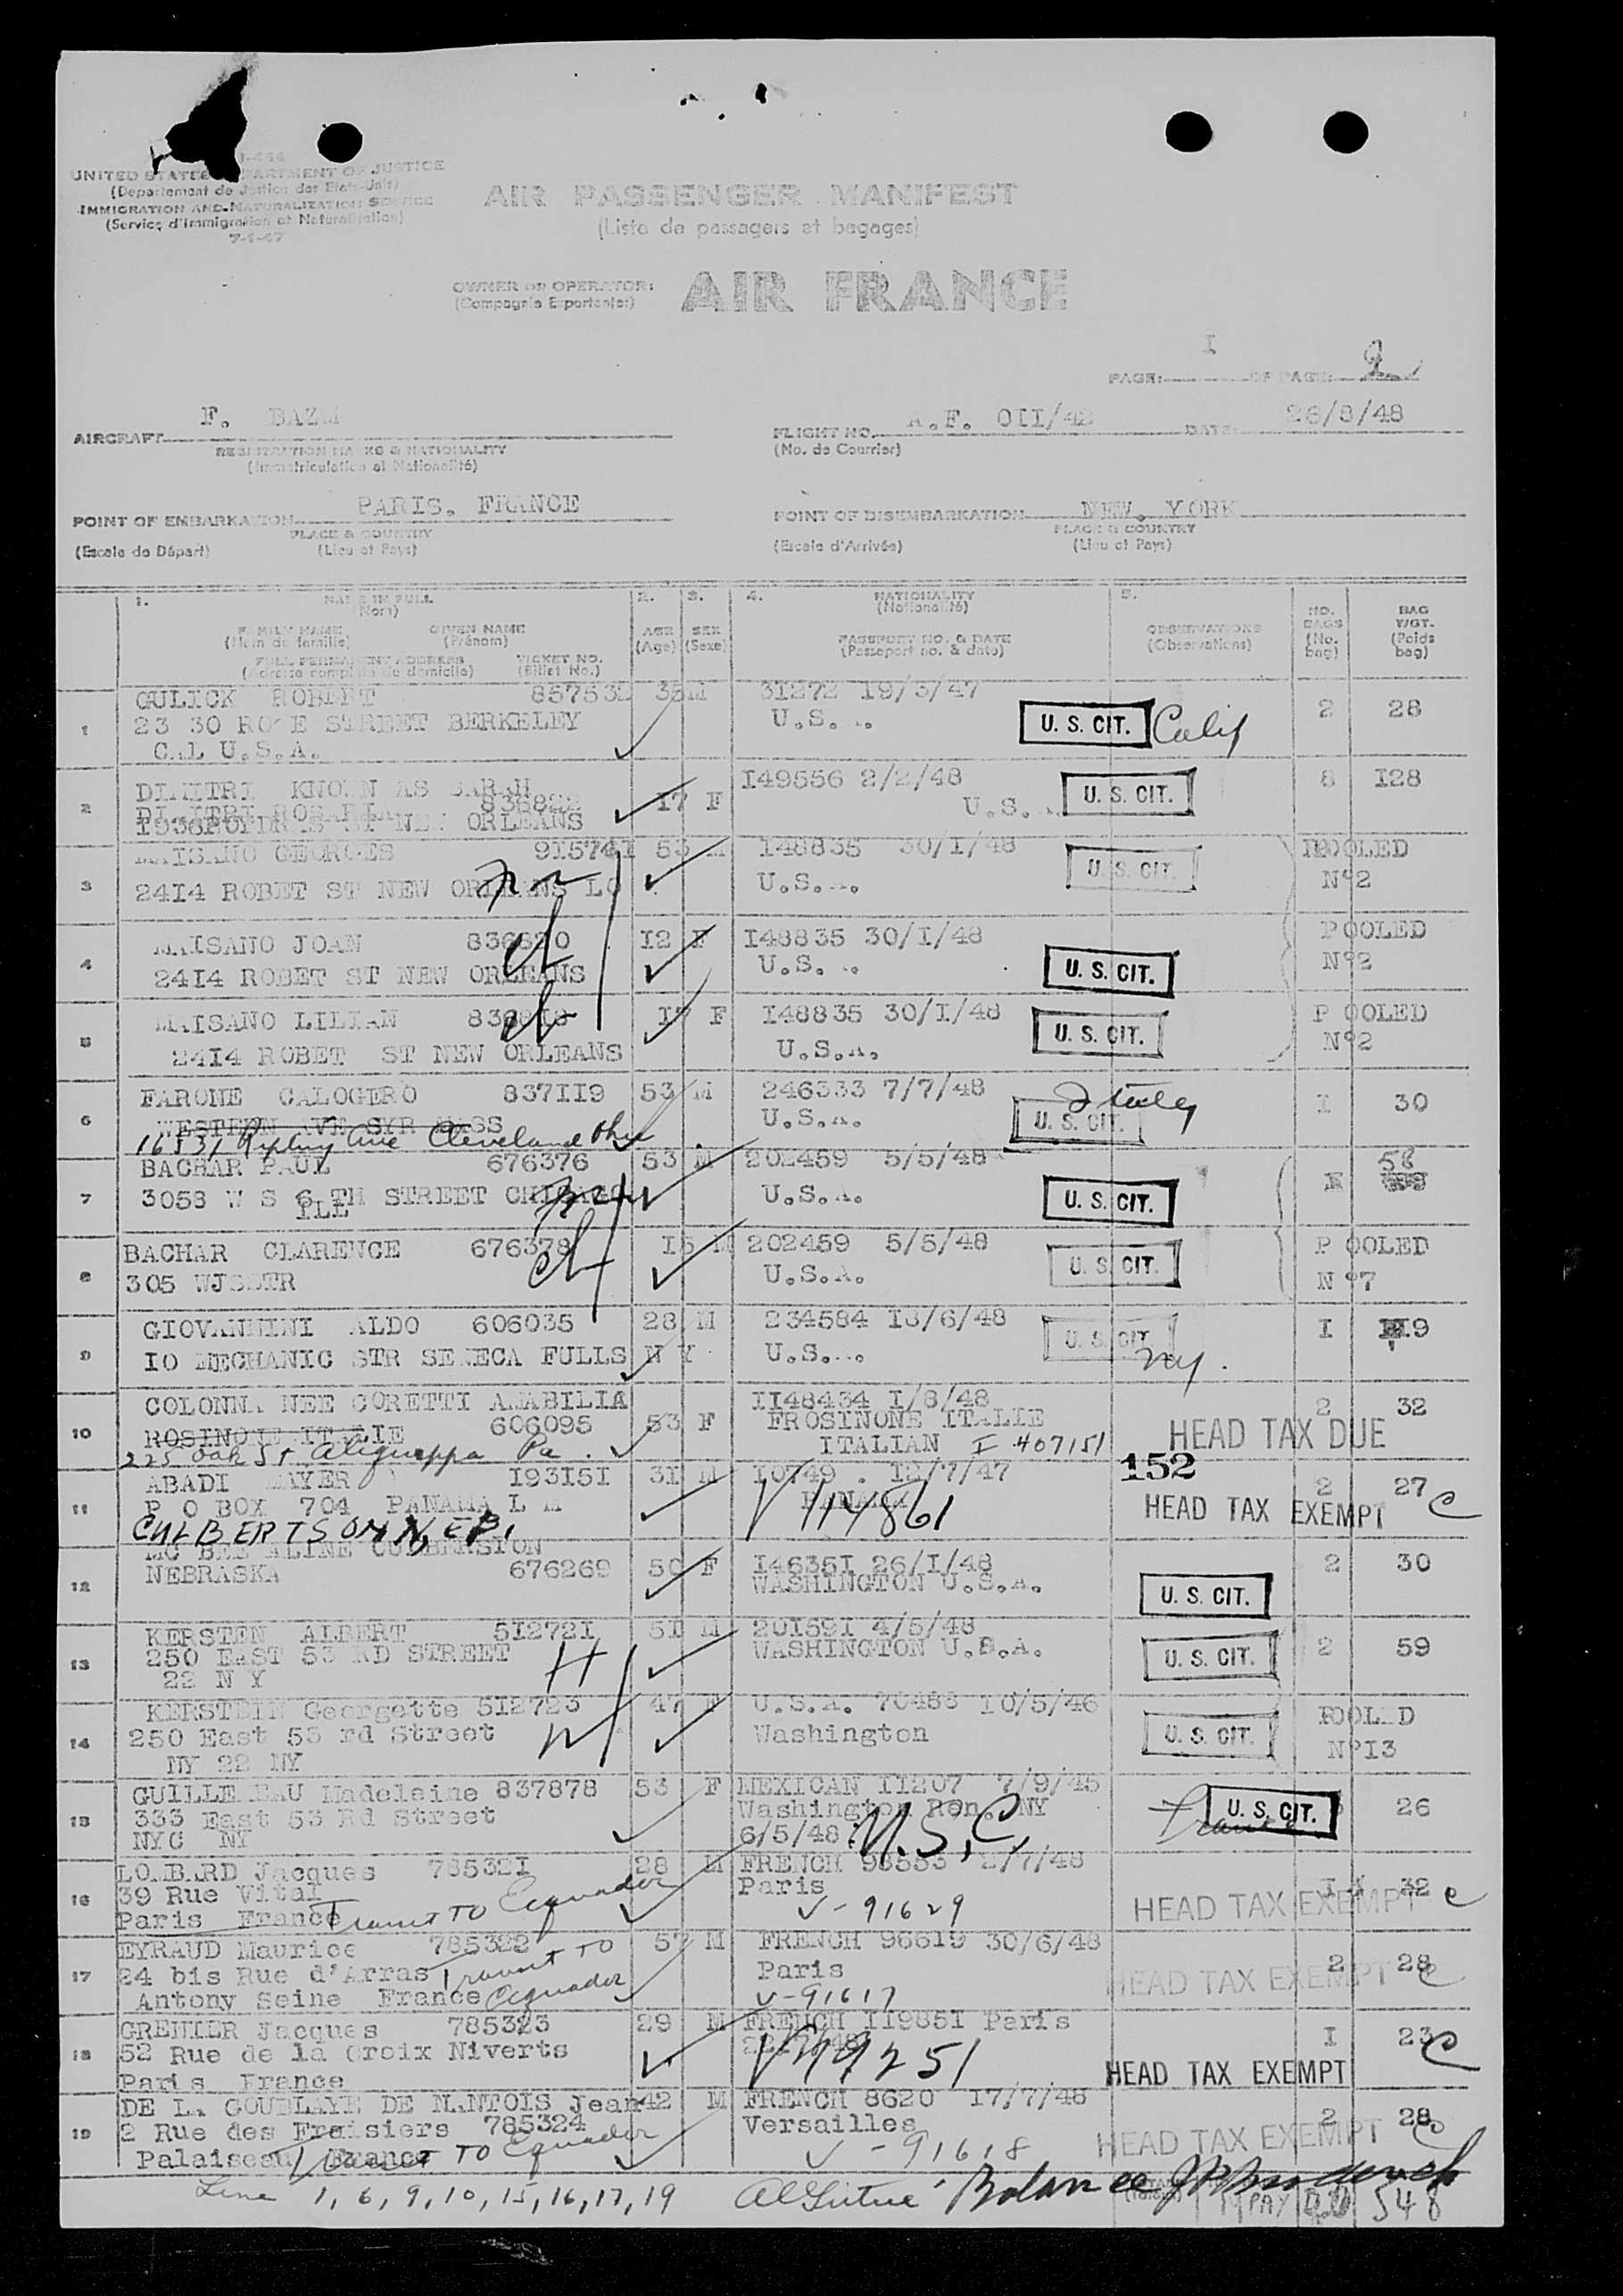 UNITED STATES DEPARTMENT OF JUSTICE
(Departement de Justice des Etats-Unis)
IMMIGRATION AND NATURALIZATION SERVICE
(Service d'Immigration et Naturalisation)
7-1-47
AIR PASSENGER MANIFEST
(Liste de passagers et bagages)
OWNER OR OPERATOR: AIR FRANCE
(Compagnie Exportante)
PAGE: I OF PAGE: 2
AIRCRAFT F. BAZ
REGISTRATION MARKS & NATIONALITY
(Immatriculation et Nationalité)
FLIGHT NO. A.F. OII/42 DATE: 26/8/48
(No. de Courrier)
POINT OF EMBARKATION PARIS. FRANCE
PLACE & COUNTRY
(Escale de Départ) (Lieu et Pays)
POINT OF DISEMBARKATION NEW. YORK
PLACE & COUNTRY
(Escale d'Arrivée) (Lieu et Pays)
1. NAME IN FULL 2. 3. 4. NATIONALITY 5. NO. BAGS BAG WGT.
(Nom) (Nationalité)
FAMILY NAME GIVEN NAME AGE SEX PASSPORT NO. & DATE OBSERVATIONS (No. bag) (Poids bag)
(Nom de famille) (Prénom) (Age) (Sexe) (Passeport no. & date) (Observations)
FULL PERMANENT ADDRESS TICKET NO.
(Adresse complète de domicile) (Billet No.)
1 GULICK ROBERT 857532 35 M 31272 19/3/47 2 28
23 30 ROSE STREET BERKELEY U.S.A. U. S. CIT. Calif
CAL U.S.A.
2 DIMITRI KNOWN AS SARAH I49556 2/2/48 8 I28
DIMITRI ROSARIA 836822 I7 F U.S.A. U. S. CIT.
I936 POYDRAS ST NEW ORLEANS
3 MAISANO GEORGES 915741 53 M I48835 30/I/48 U. S. CIT. POOLED
24I4 ROBET ST NEW ORLEANS LO U.S.A. N°2
4 MAISANO JOAN 836820 I2 F I48835 30/I/48 POOLED
24I4 ROBET ST NEW ORLEANS U.S.A. U. S. CIT. N°2
5 MAISANO LILIAN 836818 I7 F I48835 30/I/48 U. S. CIT. P OOLED
24I4 ROBET ST NEW ORLEANS U.S.A. N°2
6 FARONE CALOGERO 837II9 53 M 246333 7/7/48 Italy I 30
WESTERN AVE SYR MASS U.S.A. U. S. CIT.
16831 Ripley Ave Cleveland Ohio
7 BACHAR PAUL 676376 53 M 202459 5/5/48 58
3058 W S 6 TH STREET CHICAGO U.S.A. U. S. CIT.
ILL
8 BACHAR CLARENCE 676378 I5 M 202459 5/5/48 U. S. CIT. P OOLED
305 WJSSTR U.S.A. N °7
9 GIOVANNINI ALDO 606035 28 M 234584 I8/6/48 U. S. CIT. I 19
IO MECHANIC STR SENECA FULLS N Y U.S.A. ny.
10 COLONNA NEE CORETTI AMABILIA II48434 I/8/48 2 32
ROSINONE ITALIE 606095 53 F FROSINONE ITALIE HEAD TAX DUE
225 Oak St Aliquippa Pa. ITALIAN I 407151
11 ABADI MAYER I93I5I 3I M I0749 . I2/7/47 152 2 27
P O BOX 704 PANAMA L M PANAMA V 114861 HEAD TAX EXEMPT C
CULBERTSON NEB.
12 MC BEE ALINE CULBERTSTON I4635I 26/I/48 2 30
NEBRASKA 676269 50 F WASHINGTON U.S.A. U. S. CIT.
13 KERSTEN ALBERT 5I272I 5I M 20I59I 4/5/48
250 EAST 53 RD STREET H WASHINGTON U.S.A. U. S. CIT. 2 59
22 N Y
14 KERSTEIN Georgette 5I2723 47 F U.S.A. 70483 I0/5/46 POOLED
250 East 53 rd Street W Washington U. S. CIT. N°I3
NY 22 NY
15 GUILLE EAU Madeleine 837878 53 F MEXICAN II207 7/9/45
333 East 53 Rd Street Washington Ren. NY France U. S. CIT. 26
NYC NY 6/5/48 U.S.C.
16 LOMBARD Jacques 78532I 28 M FRENCH 96553 2/7/48
39 Rue Vital Paris HEAD TAX EXEMPT I 32 C
Paris France Transit TO Equador V-91629
17 EYRAUD Maurice 785322 57 M FRENCH 96619 30/6/48
24 bis Rue d'Arras Transit TO Equador Paris HEAD TAX EXEMPT 2 28 C
Antony Seine France V-91617
18 GRENIER Jacques 785323 29 M FRENCH II985I Paris
52 Rue de la Croix Niverts V 119251 I 23 C
Paris France HEAD TAX EXEMPT
19 DE LA GOUBLAYE DE NANTOIS Jean 42 M FRENCH 8620 I7/7/48
2 Rue des Fraisiers 785324 Versailles HEAD TAX EXEMPT 2 28 C
Palaiseau France Transit TO Equador V-91618
Line 1, 6, 9, 10, 15, 16, 17, 19 Balance 548